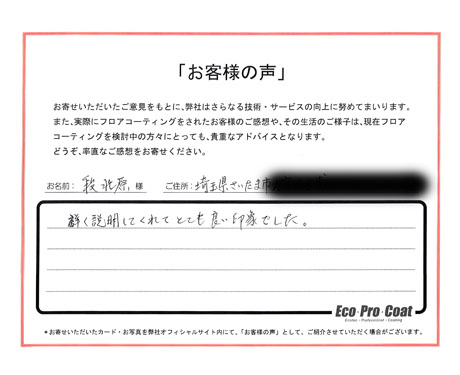 「お客様の声」
お寄せいただいたご意見をもとに、弊社はさらなる技術・サービスの向上に努めてまいります。
また、実際にフロアコーティングをされたお客様のご感想や、その生活のご様子は、現在フロア
コーティングを検討中の方々にとっても、貴重なアドバイスとなります。
どうぞ、率直なご感想をお寄せください。
お名前: 北原 様 ご住所: 埼玉県さいたま市
詳く説明してくれてとても良い印象でした。
Eco・Pro・Coat
Ecolac・Professional・Coating
*お寄せいただいたカード・お写真を弊社オフィシャルサイト内にて、「お客様の声」として、ご紹介させていただく場合がございます。